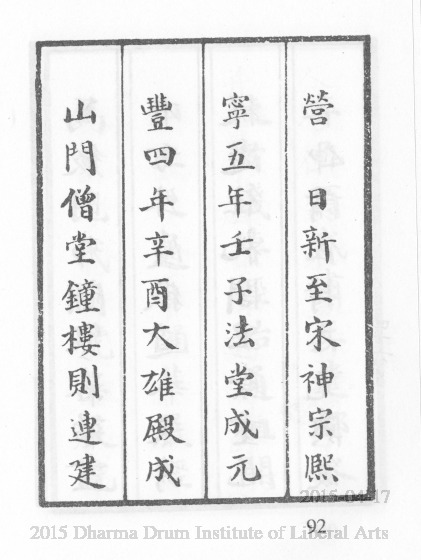 營　日新至宋神宗熈
寧五年壬子法堂成元
豐四年辛酉大雄殿成
山門僧堂鐘樓則連建
2015-04-17
92
2015 Dharma Drum Institute of Liberal Arts